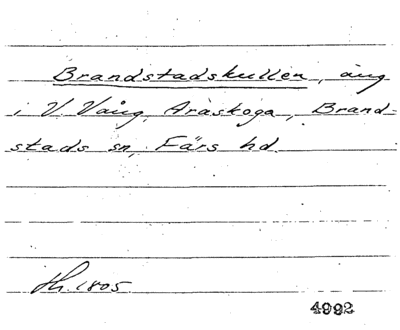 Brandstadskullen, äng
i V. Vång, Araskoga, Brand-
stads sn, Färs hd.
1805
4992